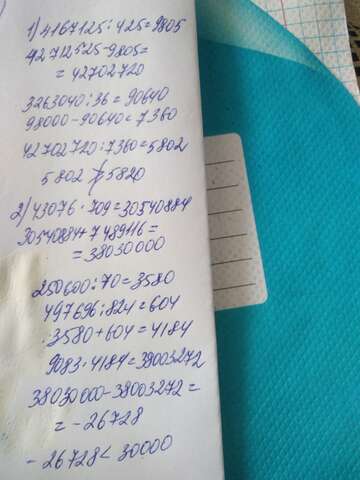 1) 4167125:425=9805
42712525-9805=
=42702720
3263040:36=90640
98000-90640=7360
42702720:7360=5802
5802 ≠ 5820
2) 43076·709=30540884
30540884+7489116=
=38030000
250600:70=3580
497696:824=604
3580+604=4184
9083·4184=38003272
38030000-38003272=
=-26728
-26728<30000